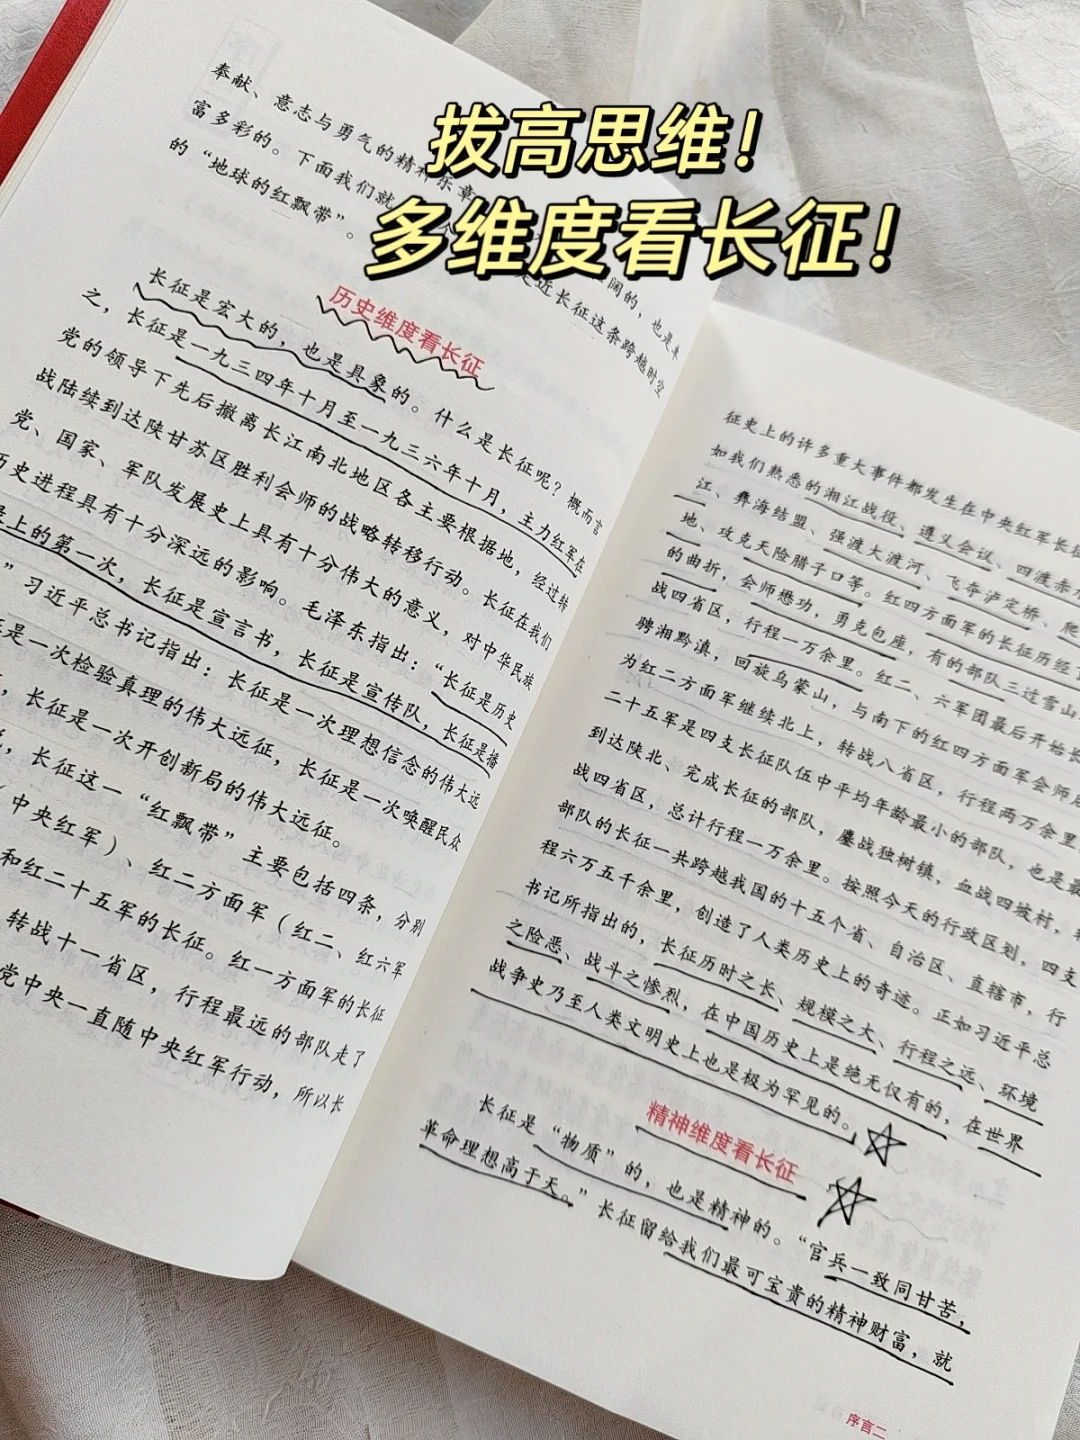 拔高思维！
多维度看长征！
奉献、意志与勇气的精神乐章
富多彩的。下面我们就
阔的，也是丰
近长征这条跨越时空
的“地球的红飘带”。
历史维度看长征
长征是宏大的，也是具象的。什么是长征呢？概而言
之，长征是一九三四年十月至一九三六年十月，主力红军在
党的领导下先后撤离长江南北地区各主要根据地，经过转
战陆续到达陕甘苏区胜利会师的战略转移行动。长征在我们
党、国家、军队发展史上具有十分伟大的意义，对中华民族
历史进程具有十分深远的影响。毛泽东指出：“长征是历史
上的第一次，长征是宣言书，长征是宣传队，长征是播
”习近平总书记指出：长征是一次理想信念的伟大远
是一次检验真理的伟大远征，长征是一次唤醒民众
，长征是一次开创新局的伟大远征。
，长征这一“红飘带”主要包括四条，分别
（中央红军）、红二方面军（红二、红六军
和红二十五军的长征。红一方面军的长征
转战十一省区，行程最远的部队走了
党中央一直随中央红军行动，所以长
征史上的许多重大事件都发生在中央红军长征
如我们熟悉的湘江战役、遵义会议、四渡赤水
江、彝海结盟、强渡大渡河、飞夺泸定桥、爬
地、攻克天险腊子口等。红四方面军的长征历经了
的曲折，会师懋功，勇克包座，有的部队三过雪山
战四省区，行程一万余里。红二、六军团最后开始长
骋湘黔滇，回旋乌蒙山，与南下的红四方面军会师后
为红二方面军继续北上，转战八省区，行程两万余里
二十五军是四支长征队伍中平均年龄最小的部队，也是最
到达陕北、完成长征的部队，鏖战独树镇，血战四坡村，转
战四省区，总计行程一万余里。按照今天的行政区划，四支
部队的长征一共跨越我国的十五个省、自治区、直辖市，行
程六万五千余里，创造了人类历史上的奇迹。正如习近平总
书记所指出的，长征历时之长、规模之大、行程之远、环境
之险恶、战斗之惨烈，在中国历史上是绝无仅有的，在世界
战争史乃至人类文明史上也是极为罕见的。
精神维度看长征
长征是“物质”的，也是精神的。“官兵一致同甘苦，
革命理想高于天。”长征留给我们最可宝贵的精神财富，就
序言二